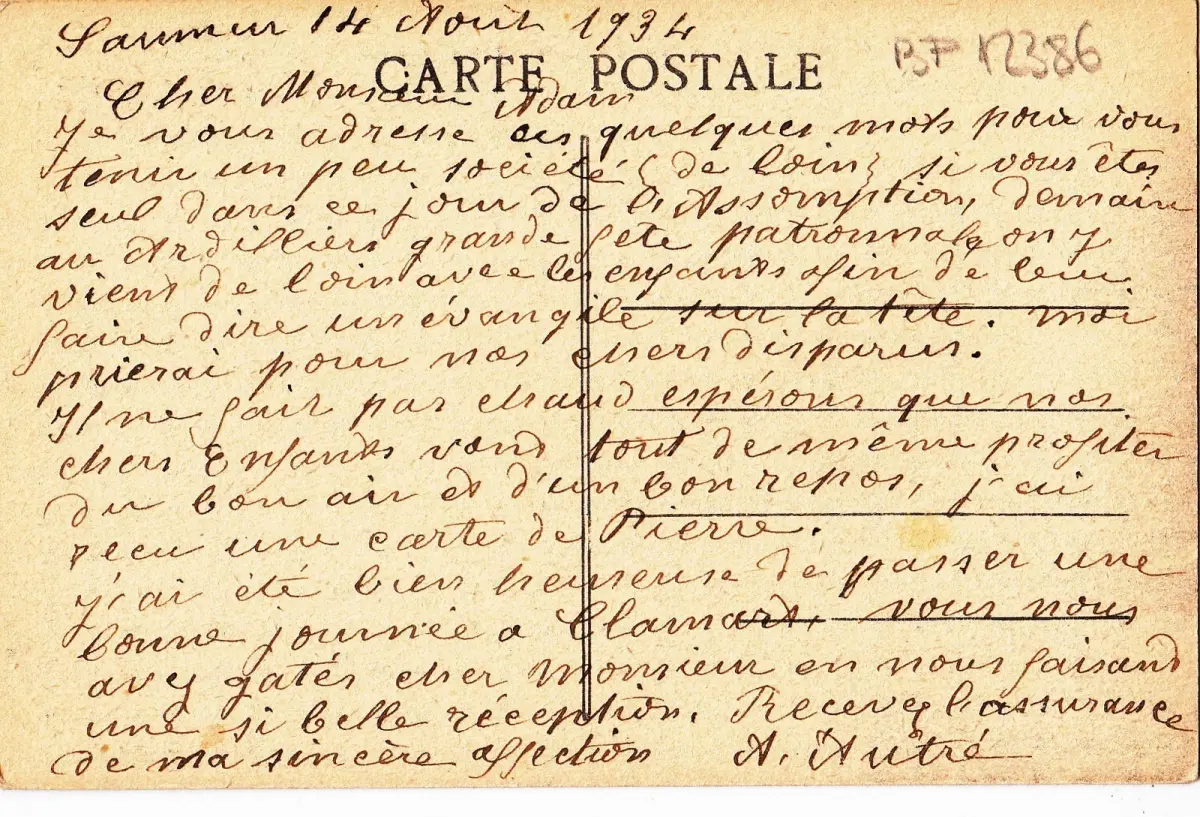 Saumur 14 Août 1934
BP 12386
CARTE POSTALE
Cher Monsieur Adam
Je vous adresse ces quelques mots pour vous
tenir un peu société (de loin) si vous êtes
seul dans ce jour de l'Assomption, demain
au Ardilliers grande fete patronnale on y
vient de loin avec les enfants afin de leur
faire dire un évangile sur la tête. moi
prierai pour nos chers disparus.
Il ne fait pas chaud espérons que nos
chers Enfants vond tout de même profiter
du bon air et d'un bon repos, j'ai
recu une carte de Pierre.
J'ai été bien heureuse de passer une
bonne journée a Clamart, vous nous
avez gatés cher Monsieur en nous faisand
une si belle réception. Recevez l'assurance
de ma sincère affection A. Autré